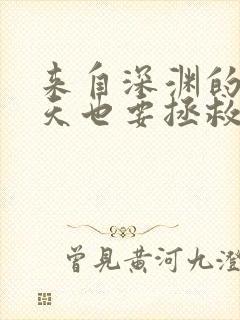 来自深渊的
天也要拯救
曾見黄河九澄